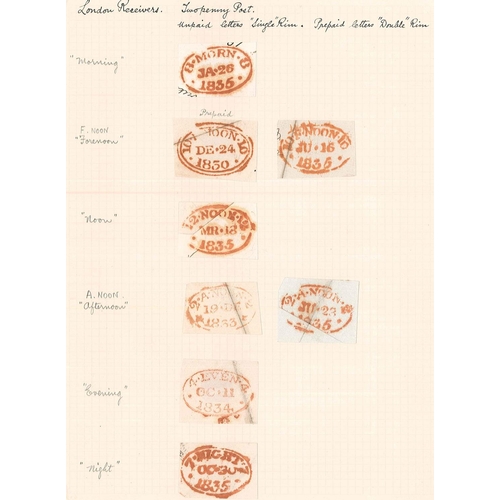 London Receivers. Twopenny Post.
Unpaid letters "Single" Rim. Prepaid letters "Double" Rim
"Morning"
8·MORN·8
JA·26
1835
Prepaid
F. NOON
"Forenoon"
NOON·10
DE·24
1830
NOON·10
JU·16
1835
"Noon"
12·NOON·12
MR·13
1835
A. NOON.
"Afternoon"
1833
2·A·NOON
JU·23
1835
"Evening"
4·EVEN·4
OC·11
1834
"Night"
7·NIGHT·7
OC·30
1835